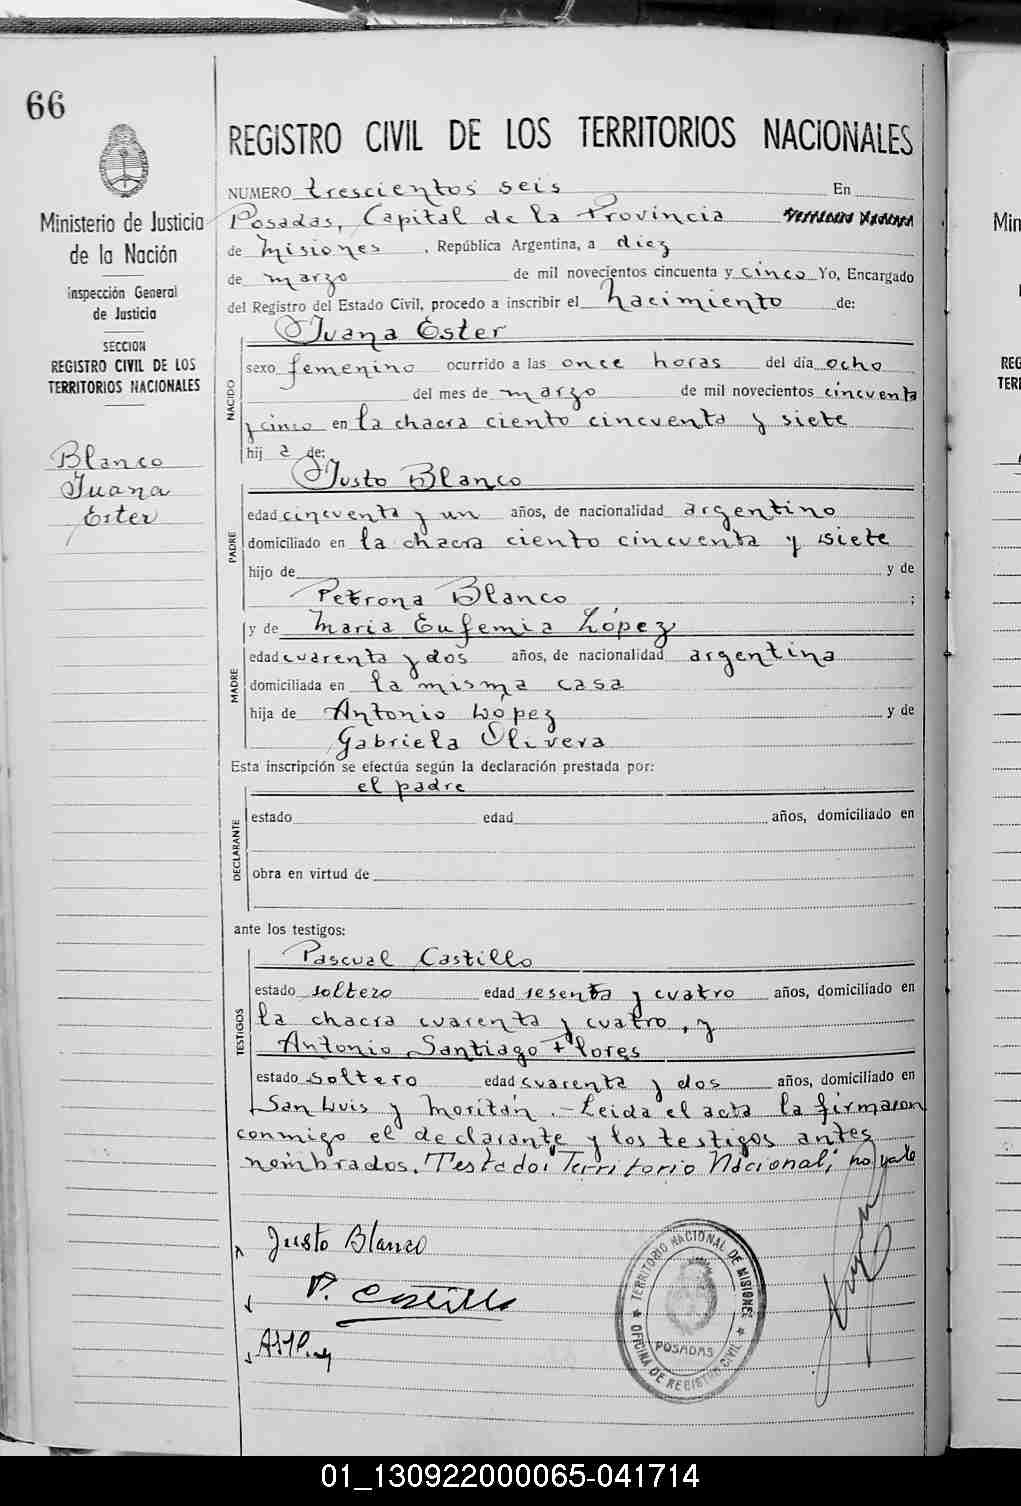 66
Ministerio de Justicia
de la Nación
Inspección General
de Justicia
SECCION
REGISTRO CIVIL DE LOS
TERRITORIOS NACIONALES
Blanco
Juana
Ester
REGISTRO CIVIL DE LOS TERRITORIOS NACIONALES
NUMERO trescientos seis En
Posadas, Capital de la Provincia
de Misiones, República Argentina, a diez
de marzo de mil novecientos cincuenta y cinco Yo, Encargado
del Registro del Estado Civil, procedo a inscribir el nacimiento de:
Juana Ester
NACIDO
sexo femenino ocurrido a las once horas del día ocho
del mes de marzo de mil novecientos cincuenta
y cinco en la chacra ciento cincuenta y siete
hij a de:
Justo Blanco
PADRE
edad cincuenta y un años, de nacionalidad argentino
domiciliado en la chacra ciento cincuenta y siete
hijo de y de
Petrona Blanco ;
y de Maria Eufemia López
MADRE
edad cuarenta y dos años, de nacionalidad argentina
domiciliada en la misma casa
hija de Antonio López y de
Gabriela Olivera
Esta inscripción se efectúa según la declaración prestada por:
el padre
DECLARANTE
estado edad años, domiciliado en
obra en virtud de
ante los testigos:
Pascual Castillo
TESTIGOS
estado soltero edad sesenta y cuatro años, domiciliado en
la chacra cuarenta y cuatro, y
Antonio Santiago Flores
estado soltero edad cuarenta y dos años, domiciliado en
San Luis y Moritán.- Leida el acta la firmaron
conmigo el declarante y los testigos antes
nombrados. Testado: "Territorio Nacional", no vale
Justo Blanco
P. Castillo
TERRITORIO NACIONAL DE MISIONES
POSADAS
OFICINA DE REGISTRO CIVIL
Min
REG
TERI
01_130922000065-041714